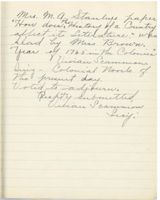 Mrs. M. A. Stanley's paper
"How does History of a Country
affect its Literature." was
read by Mrs Brown.
Year of 1765 in the Colonies
Vivian Scammon
Song - Colonial Novels of
the present day.
Voted to adjourn.
Respty Submitted,
Vivian Scammon
Secy.